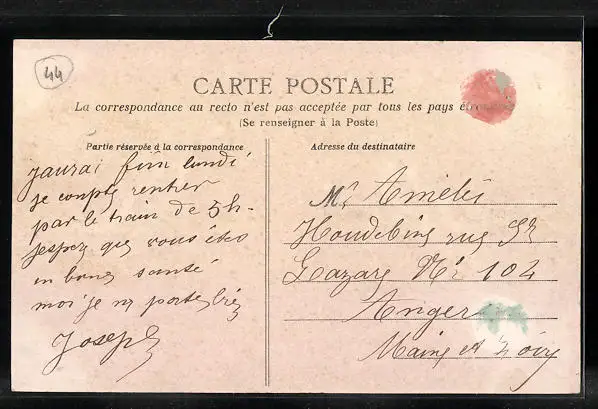 44
CARTE POSTALE
La correspondance au recto n'est pas acceptée par tous les pays étrangers
(Se renseigner à la Poste)
Partie réservée à la correspondance
jaurai fini lundi
je compte rentrer
par le train de 5h-
jespez que vous étes
en bone santé
moi je me porte bien
Joseph
Adresse du destinataire
Mr Amédée
Houdebine rue St
Lazare Nr 102
Angers
Maine et Loire